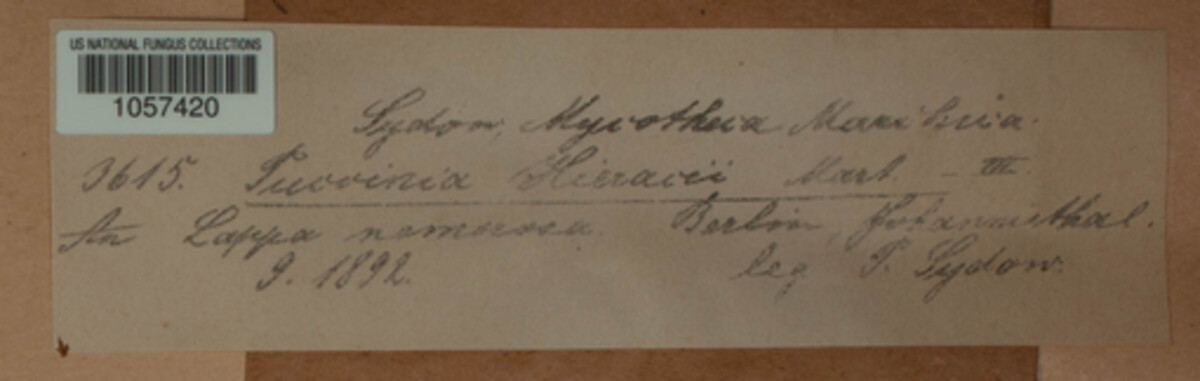 US NATIONAL FUNGUS COLLECTIONS
1057420
Sydow, Mycotheca Marchica.
3615. Puccinia Hieracii Mart. - III.
An Lappa nemorosa. Berlin, Johannisthal.
9. 1892. leg P. Sydow.